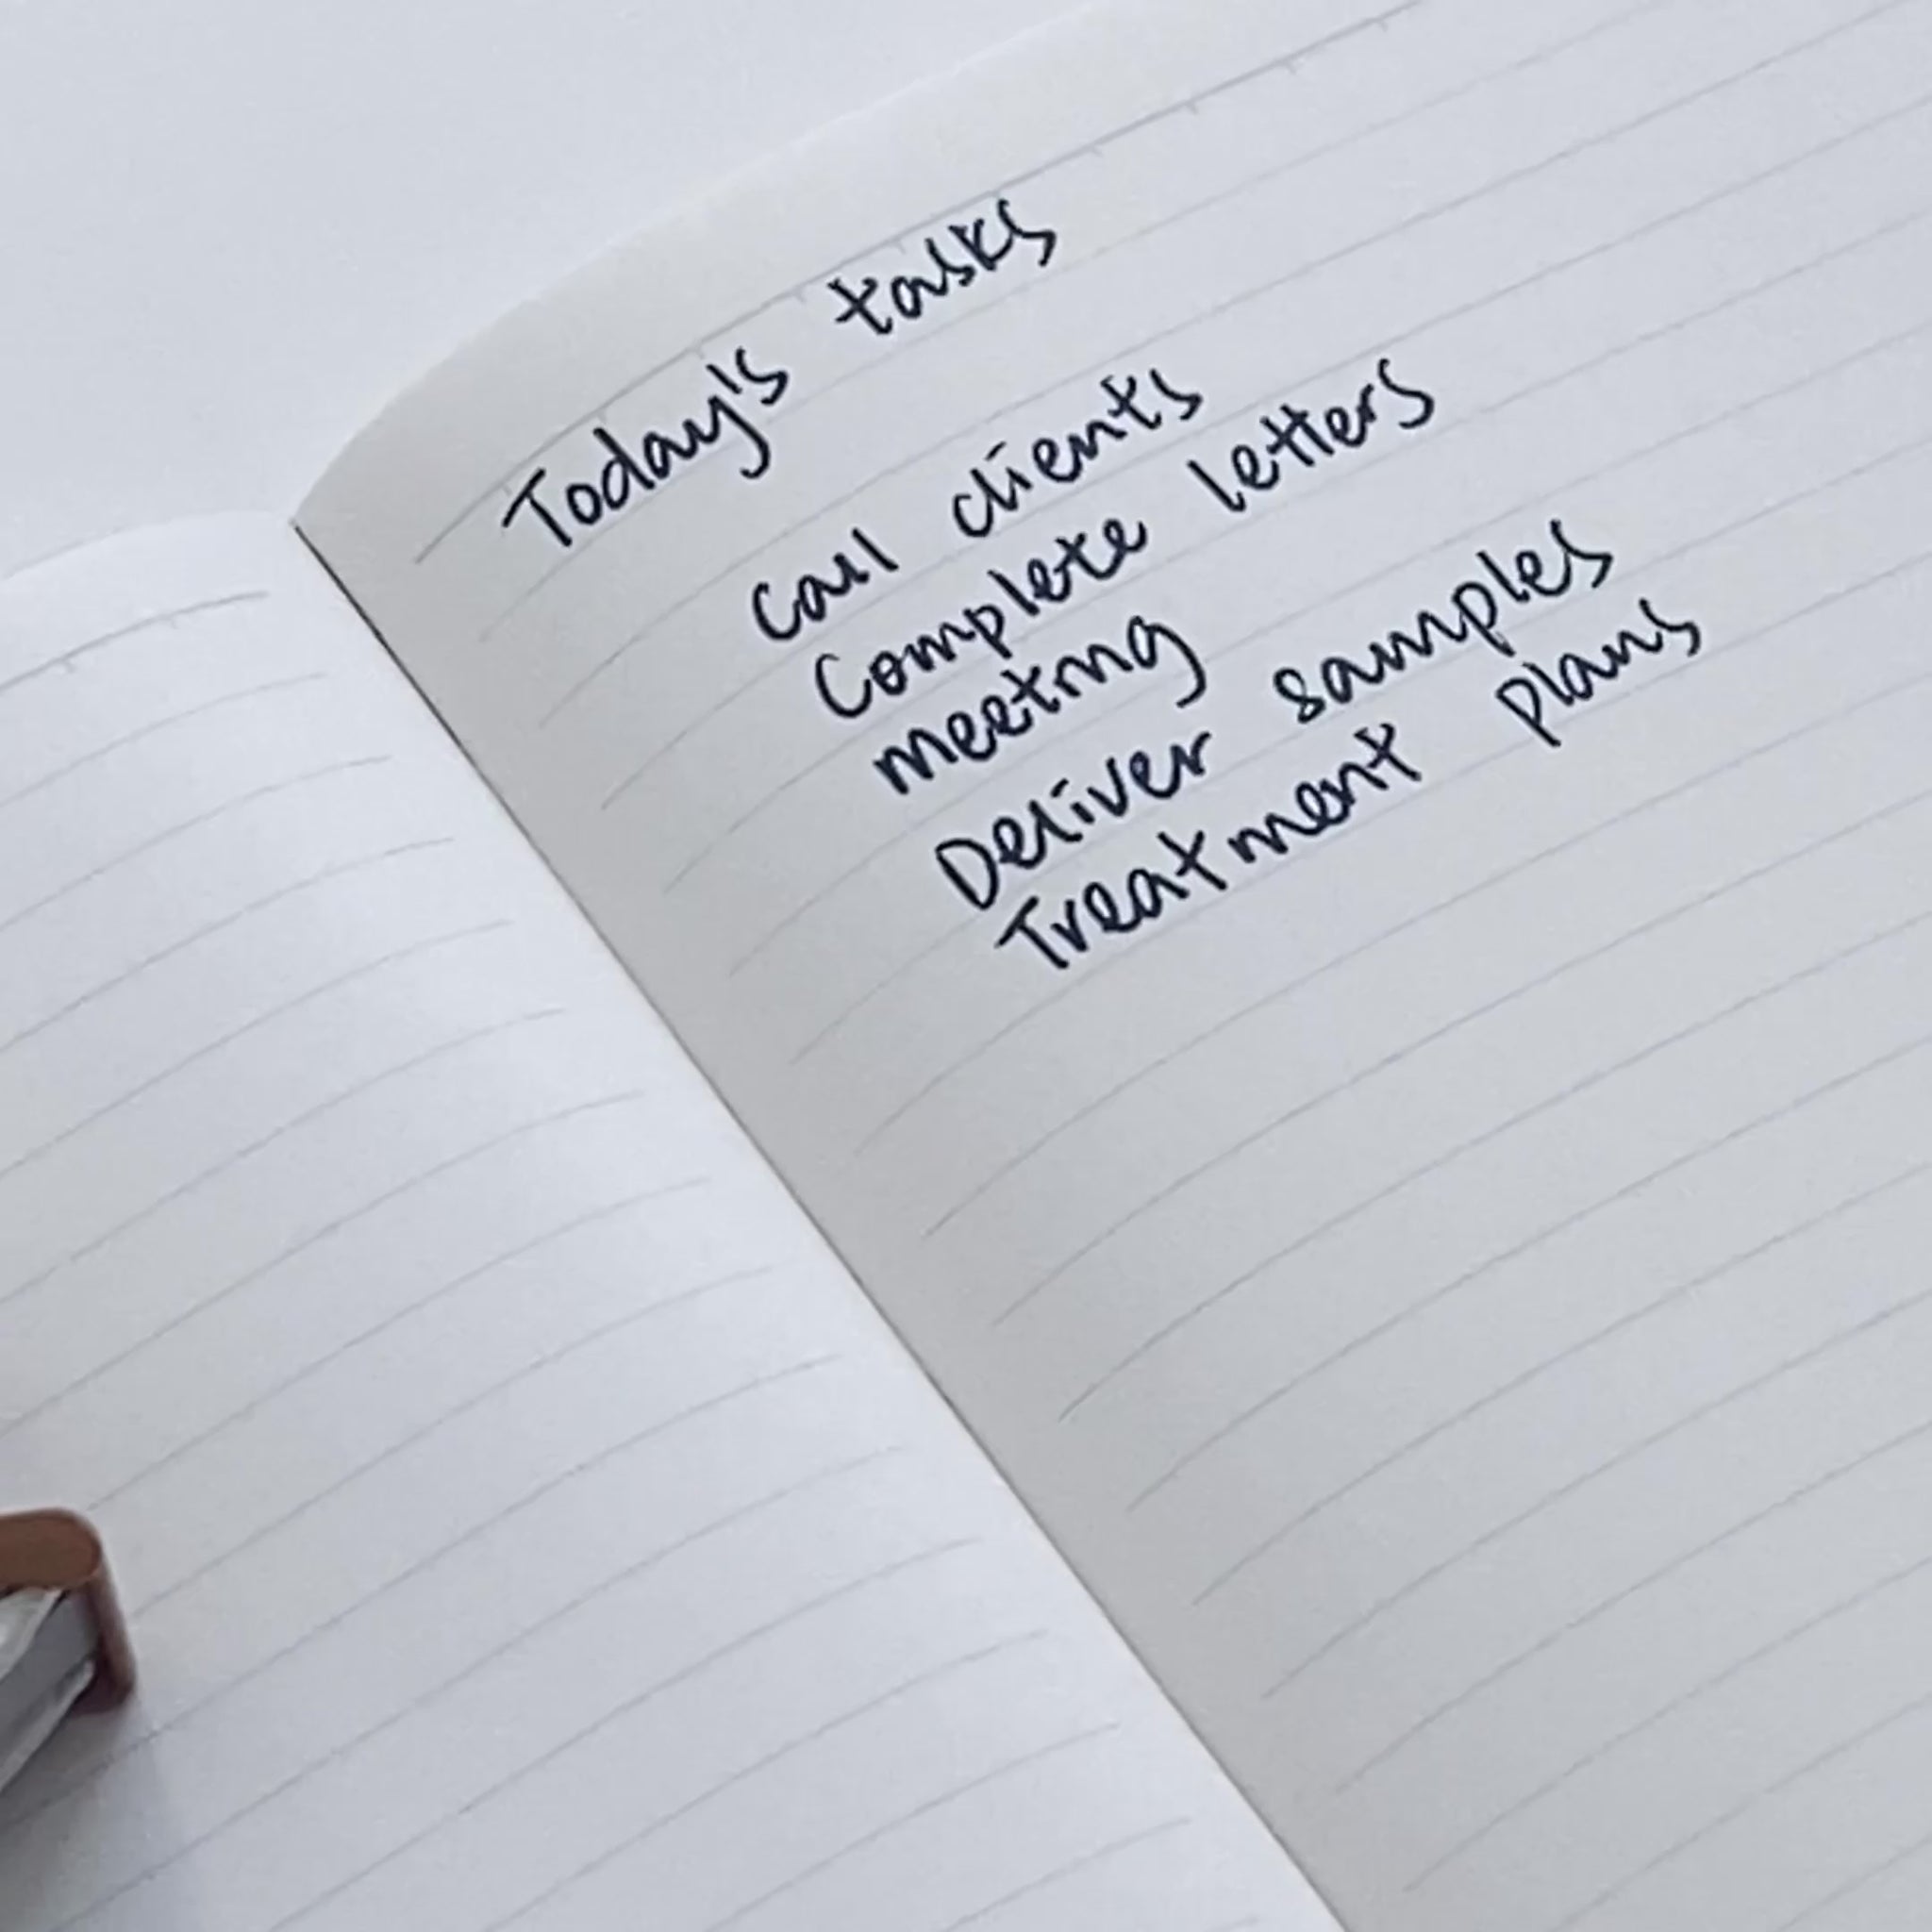 Today's tasks
Call clients
Complete letters
meeting
Deliver samples
Treatment plans